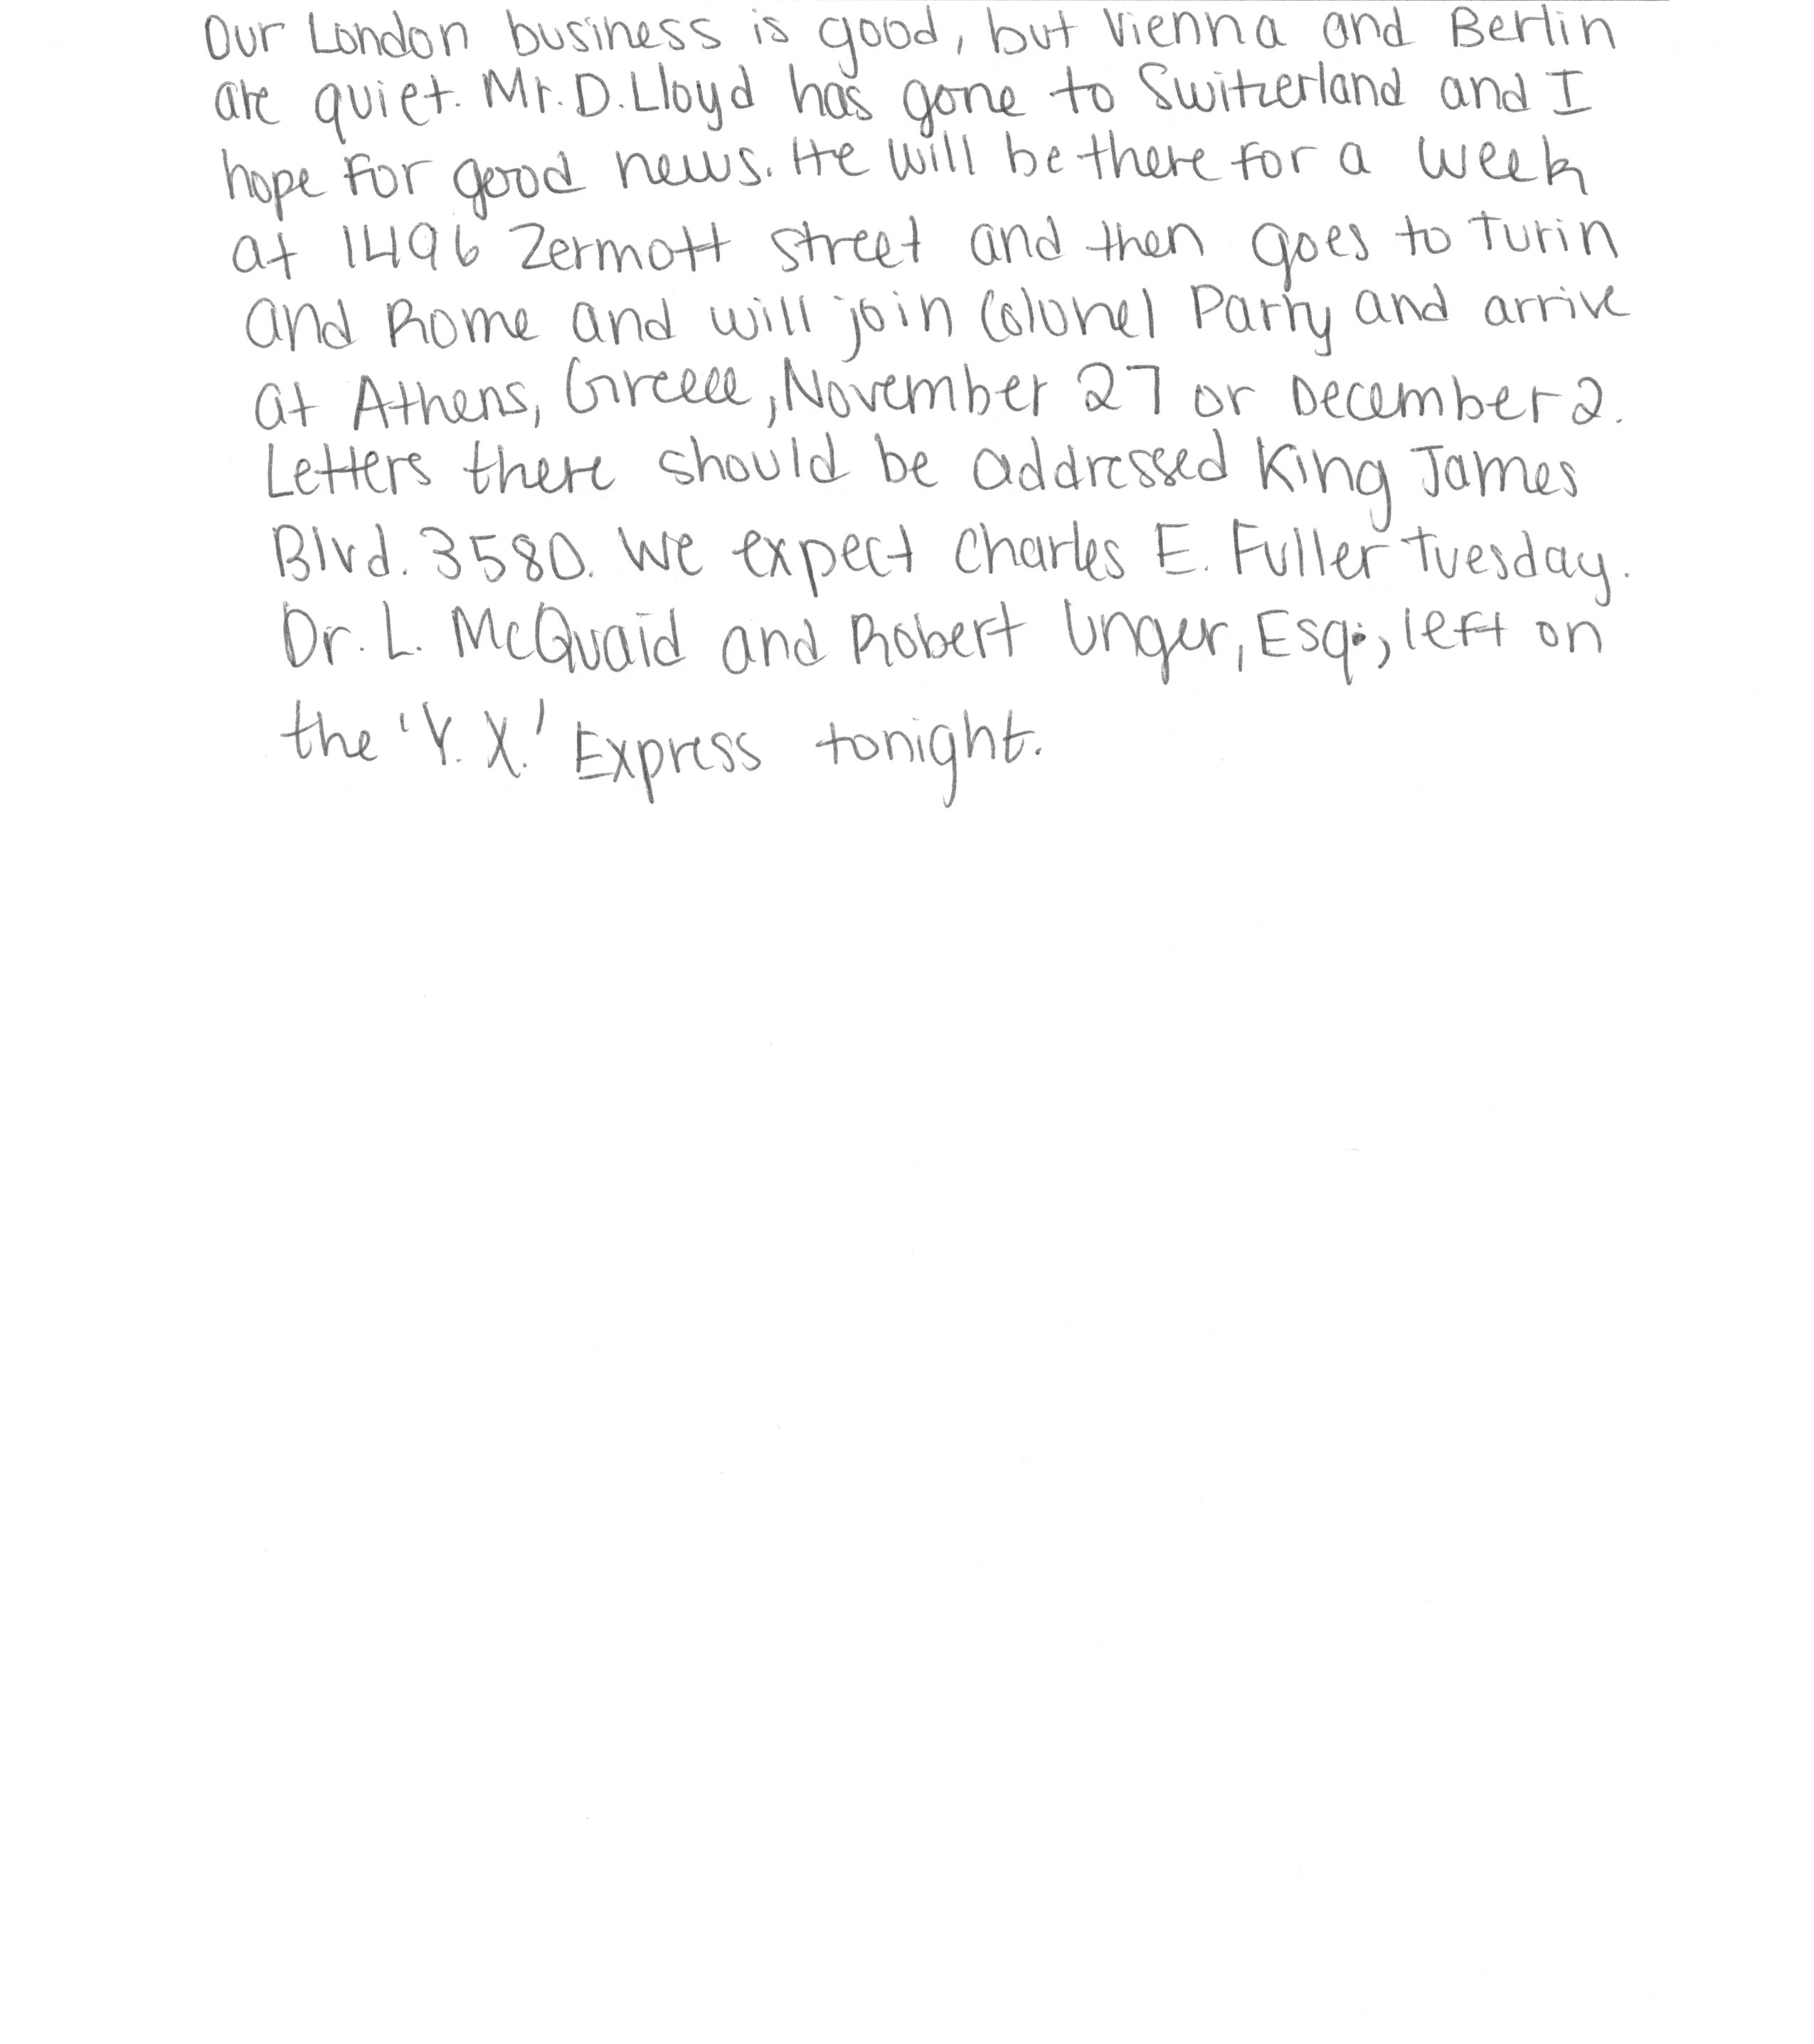 Our London business is good, but Vienna and Berlin
are quiet. Mr. D. Lloyd has gone to Switzerland and I
hope for good news. He will be there for a week
at 1496 Zermott street and then goes to Turin
and Rome and will join Colonel Parry and arrive
at Athens, Greece, November 27 or December 2.
Letters there should be addressed King James
Blvd. 3580. We expect Charles E. Fuller Tuesday.
Dr. L. McQuaid and Robert Unger, Esq., left on
the 'Y. X.' Express tonight.